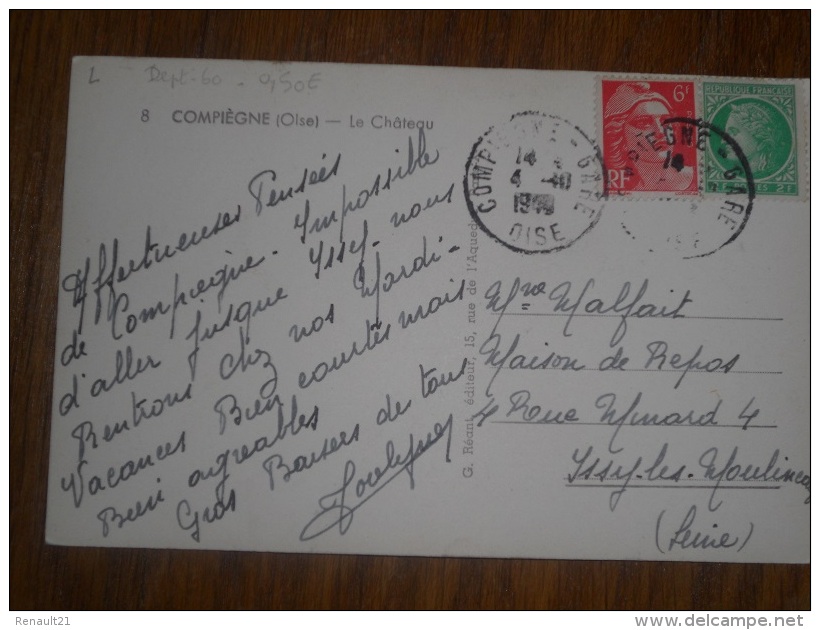 L Dept-60 - 0,50€
8 COMPIÈGNE (Oise) — Le Château
Affectueuses Pensées
de Compiegne. Impossible
d'aller jusque Issy. nous
Rentrons chez nos Mardi-
Vacances Bien courtes mais
Bien agreables
Gros Baisers de tous
G. Réant, éditeur, 15, rue de l'Aqued
COMPIEGNE - GARE
14
4 -10
OISE
6F
RF
REPUBLIQUE FRANÇAISE
POSTES 2F
COMPIEGNE - GARE
14
Mme Malfait
Maison de Repos
4 Rue Minard 4
Issy-les-Moulineaux
(Seine)
Renault21
www.delcampe.net